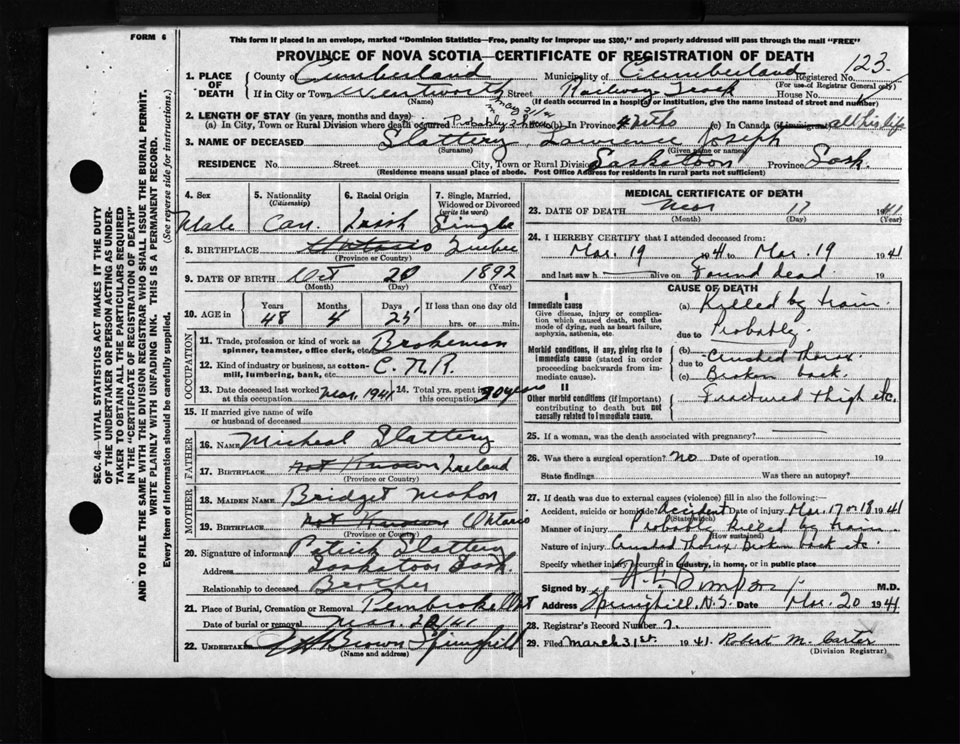 FORM 6
This form if placed in an envelope, marked "Dominion Statistics—Free, penalty for improper use $300," and properly addressed will pass through the mail "FREE"
PROVINCE OF NOVA SCOTIA—CERTIFICATE OF REGISTRATION OF DEATH
123
1. PLACE OF DEATH County of Cumberland Municipality of Cumberland Registered No.
(For use of Registrar General only)
If in City or Town Wentworth Street Railway Track House No.
(Name) (If death occurred in a hospital or institution, give the name instead of street and number)
2. LENGTH OF STAY (in years, months and days)
(a) In City, Town or Rural Division where death occurred Probably (b) In Province (c) In Canada (if immigrant) all his life
3. NAME OF DECEASED Slattery, Lawrence Joseph
(Surname) (Given name or names)
RESIDENCE No. Street City, Town or Rural Division Saskatoon Province Sask.
(Residence means usual place of abode. Post Office Address for residents in rural parts not sufficient)
4. Sex Male
5. Nationality (Citizenship) Can.
6. Racial Origin Irish
7. Single, Married, Widowed or Divorced (write the word) Single
8. BIRTHPLACE Ontario Quebec
(Province or Country)
9. DATE OF BIRTH Oct 20 1892
(Month) (Day) (Year)
10. AGE in Years 48 Months 4 Days 25 If less than one day old hrs. or min.
OCCUPATION
11. Trade, profession or kind of work as spinner, teamster, office clerk, etc. Brakeman
12. Kind of industry or business, as cotton-mill, lumbering, bank, etc. C.N.R.
13. Date deceased last worked at this occupation Mar. 1941 14. Total yrs. spent in this occupation 20 years
15. If married give name of wife or husband of deceased
FATHER
16. NAME Micheal Slattery
17. BIRTHPLACE Not Known Ireland
(Province or Country)
MOTHER
18. MAIDEN NAME Bridget Mahon
19. BIRTHPLACE Not Known Ontario
(Province or Country)
20. Signature of informant Patrick Slattery
Address Saskatoon Sask.
Relationship to deceased Brother
21. Place of Burial, Cremation or Removal Pembroke Ont
Date of burial or removal Mar. 22/41
22. UNDERTAKER Brown Springhill
(Name and address)
MEDICAL CERTIFICATE OF DEATH
23. DATE OF DEATH Mar 17 1941
(Month) (Day) (Year)
24. I HEREBY CERTIFY that I attended deceased from:
Mar. 19 1941 to Mar. 19 1941
and last saw h alive on Found dead 19
CAUSE OF DEATH
I
Immediate cause
Give disease, injury or complication which caused death, not the mode of dying, such as heart failure, asphyxia, asthenia, etc.
(a) Killed by train.
due to Probably.
Morbid conditions, if any, giving rise to immediate cause (stated in order proceeding backwards from immediate cause).
(b) Crushed Thorax
due to
(c) Broken back.
II
Other morbid conditions (if important) contributing to death but not causally related to immediate cause.
Fractured thigh etc.
25. If a woman, was the death associated with pregnancy?
26. Was there a surgical operation? No Date of operation 19
State findings Was there an autopsy?
27. If death was due to external causes (violence) fill in also the following:—
Accident, suicide or homicide? Accident Date of injury Mar. 17 or 18 1941
(State which)
Manner of injury Probably killed by train.
(How sustained)
Nature of injury Crushed Thorax, Broken back etc
Specify whether injury occurred in industry, in home, or in public place
Signed by M.D.
Address Springhill, N.S. Date Mar. 20 1941
28. Registrar's Record Number 7.
29. Filed March 31st. 1941. Robert M. Carter
(Division Registrar)
SEC. 46—VITAL STATISTICS ACT MAKES IT THE DUTY OF THE UNDERTAKER OR PERSON ACTING AS UNDERTAKER TO OBTAIN ALL THE PARTICULARS REQUIRED IN THE "CERTIFICATE OF REGISTRATION OF DEATH" AND TO FILE THE SAME WITH THE DIVISION REGISTRAR WHO SHALL ISSUE THE BURIAL PERMIT.
WRITE PLAINLY WITH UNFADING INK. THIS IS A PERMANENT RECORD.
Every item of information should be carefully supplied. (See reverse side for instructions.)